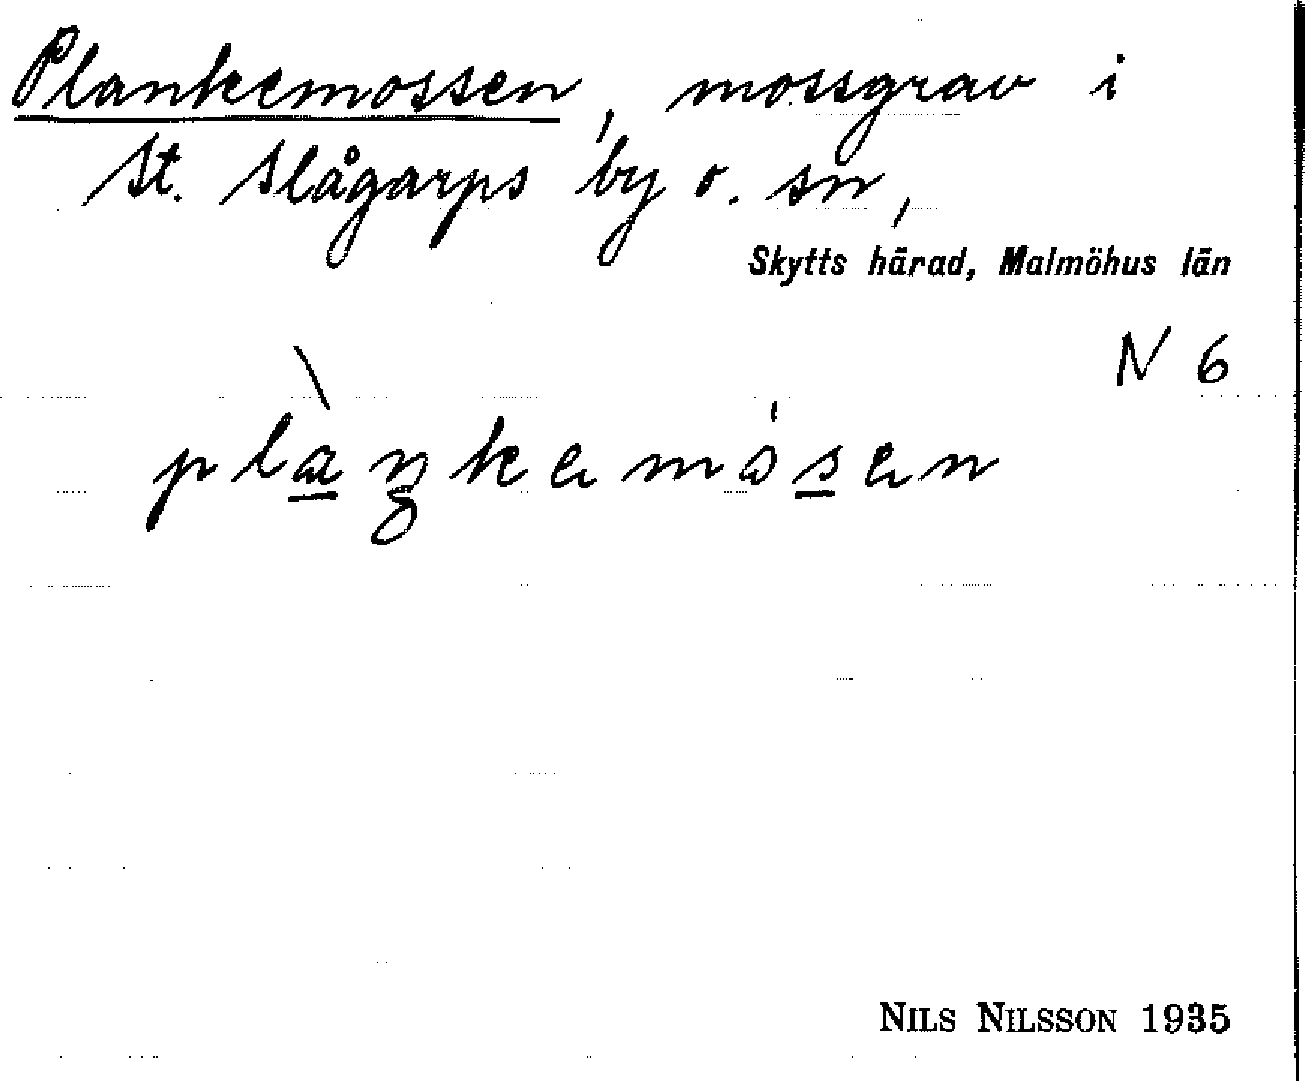 Plankemossen, mossgrav i
St. Slågarps by o. sn,
Skytts härad, Malmöhus län
N 6
plàŋkemósen
NILS NILSSON 1935